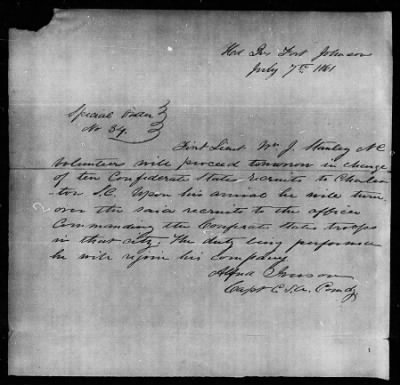 Hd Qrs Fort Johnson
July 7th 1861
Special Order
No 34.
First Lieut Wm J. Stanley NC
Volunteers will proceed tomorrow in charge
of ten Confederate States recruits to Charles-
ton S.C. Upon his arrival he will turn
over the said recruits to the officer
Commanding the Confederate States troops
in that city. The duty being performed
he will rejoin his company
Alfred Iverson
Capt C.S.A. Comdg